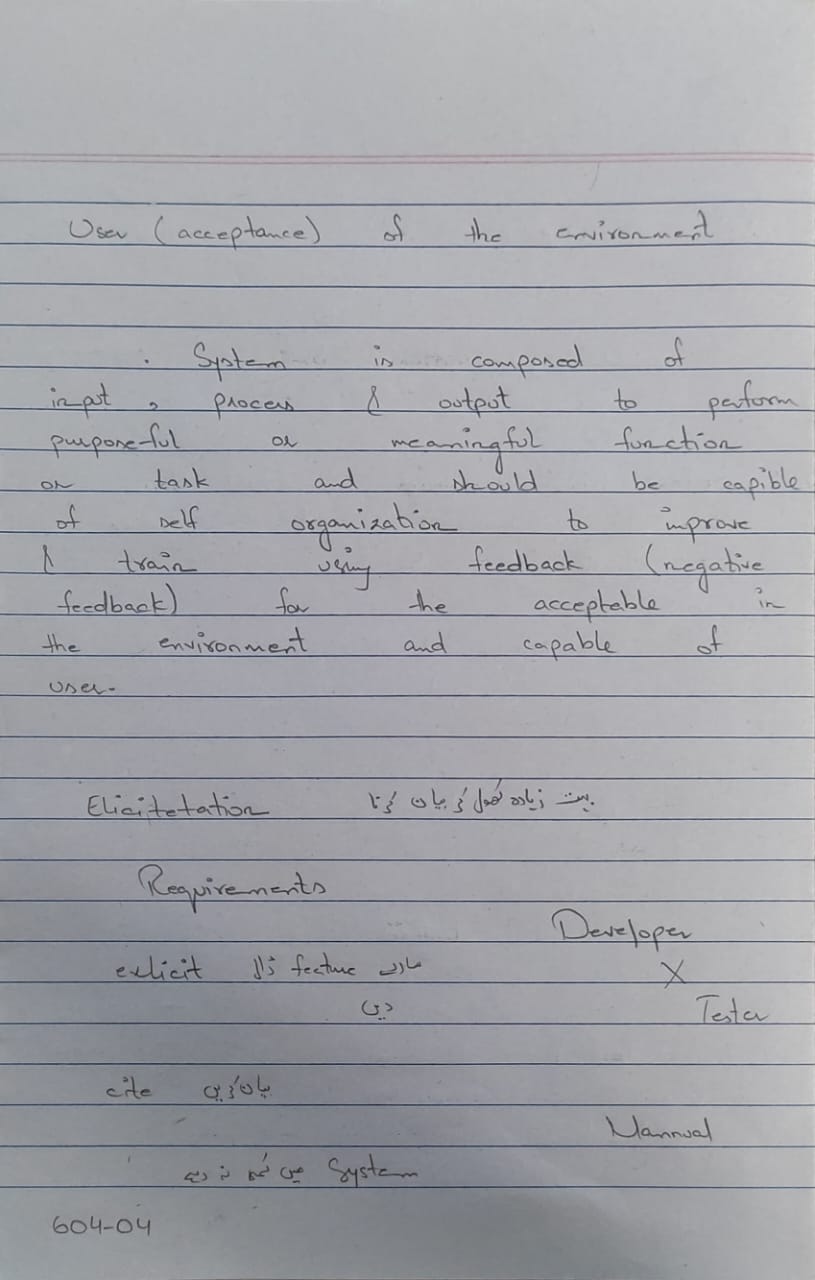 User (acceptance) of the environment
. System is composed of
input , process & output to perform
purpose-ful or meaningful function
or task and should be capible
of self organization to improve
& train using feedback (negative
feedback) for the acceptable in
the environment and capable of
user.
Elicitetation بہت زیادہ کھول کر بیان کرنا
Requirements
Developer
exlicit سارے feature ڈال
X
دیں
Tester
cite بیان کریں
Mannual
System میں نہ دیے
604-04